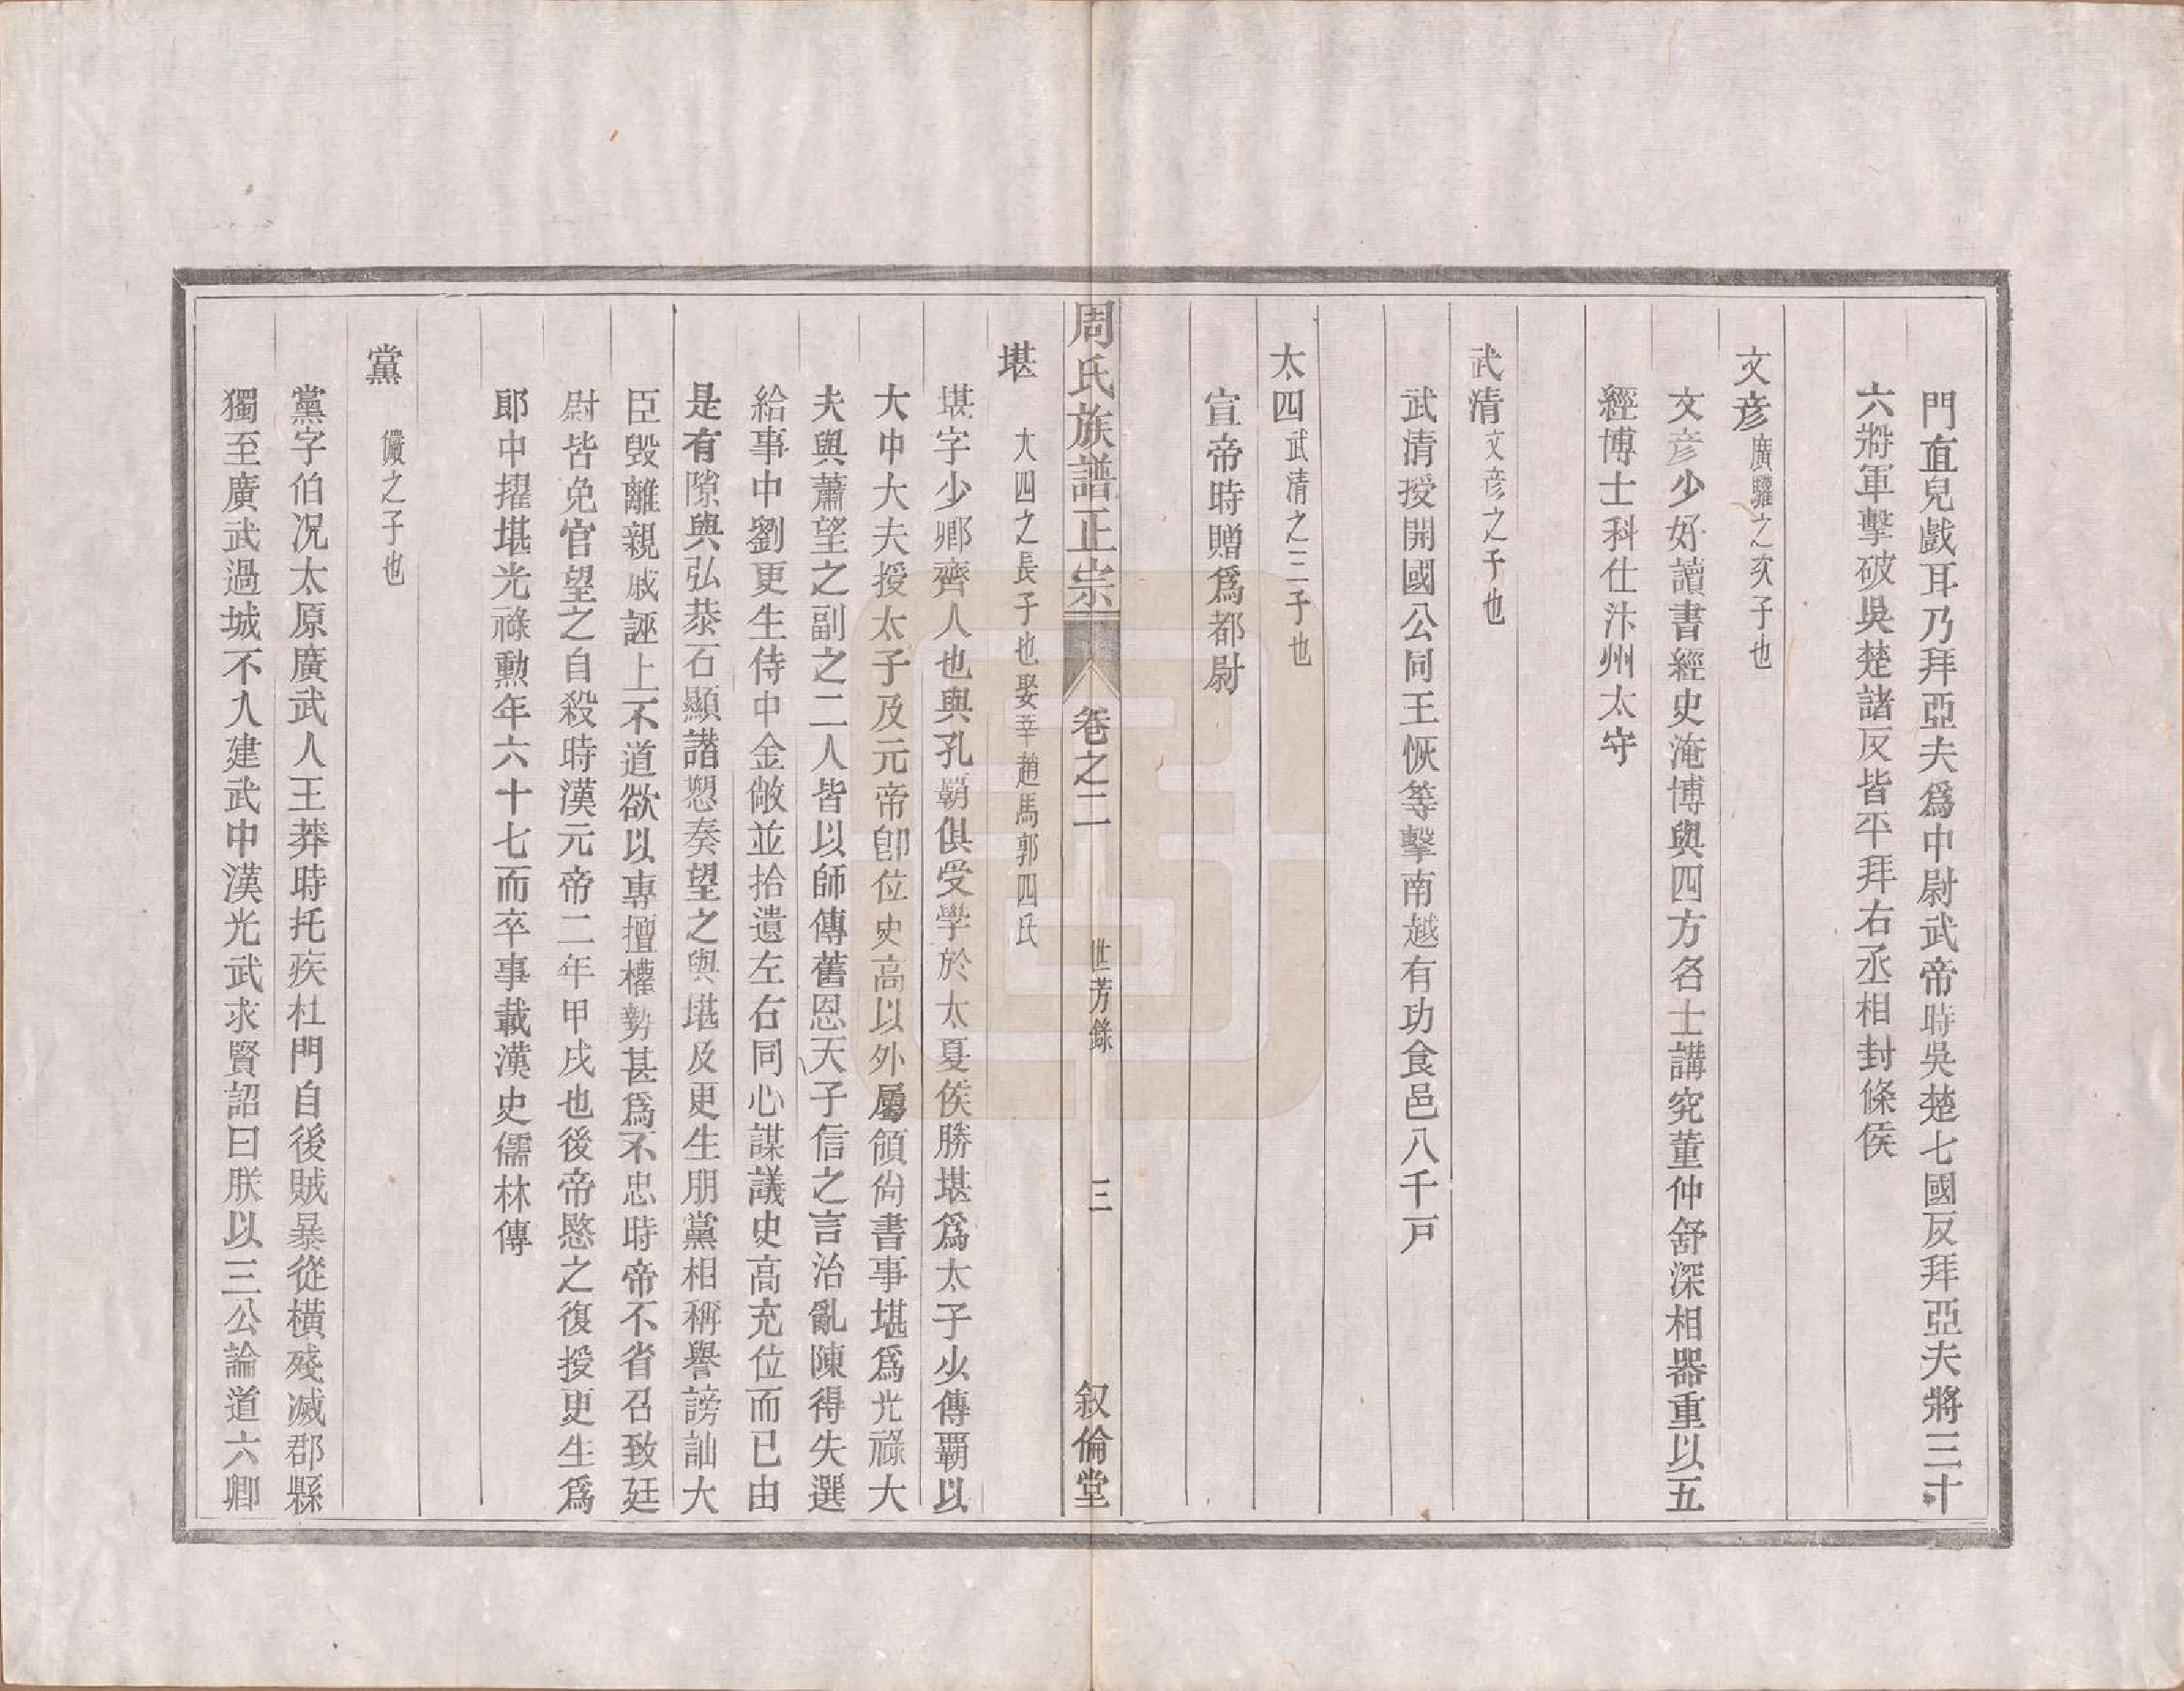 門直兒戲耳乃拜亞夫爲中尉武帝時吳楚七國反拜亞夫將三十
六將軍擊破吳楚諸反皆平拜右丞相封條侯
文彥 廣驩之次子也
文彥少好讀書經史淹博與四方名士講究董仲舒深相器重以五
經博士科仕汴州太守
武清 文彥之子也
武清授開國公同王恢等擊南越有功食邑八千戸
太四 武清之三子也
宣帝時贈爲都尉
周氏族譜正宗 卷之二 世芳錄 三 叙倫堂
堪 大四之長子也娶辛趙馬郭四氏
堪字少卿齊人也與孔覇俱受學於太夏侯勝堪爲太子少傳覇以
大中大夫授太子及元帝卽位史高以外屬領尙書事堪爲光祿大
夫與蕭望之副之二人皆以師傳舊恩天子信之言治亂陳得失選
給事中劉更生侍中金敞並拾遺左右同心謀議史高充位而已由
是有隙與弘恭石顯譖愬奏望之與堪及更生朋黨相稱譽謗訕大
臣毀離親戚誣上不道欲以專擅權勢甚爲不忠時帝不省召致廷
尉皆免官望之自殺時漢元帝二年甲戌也後帝愍之復授更生爲
郎中擢堪光祿勳年六十七而卒事載漢史儒林傳
黨 儼之子也
黨字伯况太原廣武人王莽時托疾杜門自後賊暴從橫殘滅郡縣
獨至廣武過城不入建武中漢光武求賢詔曰朕以三公論道六卿